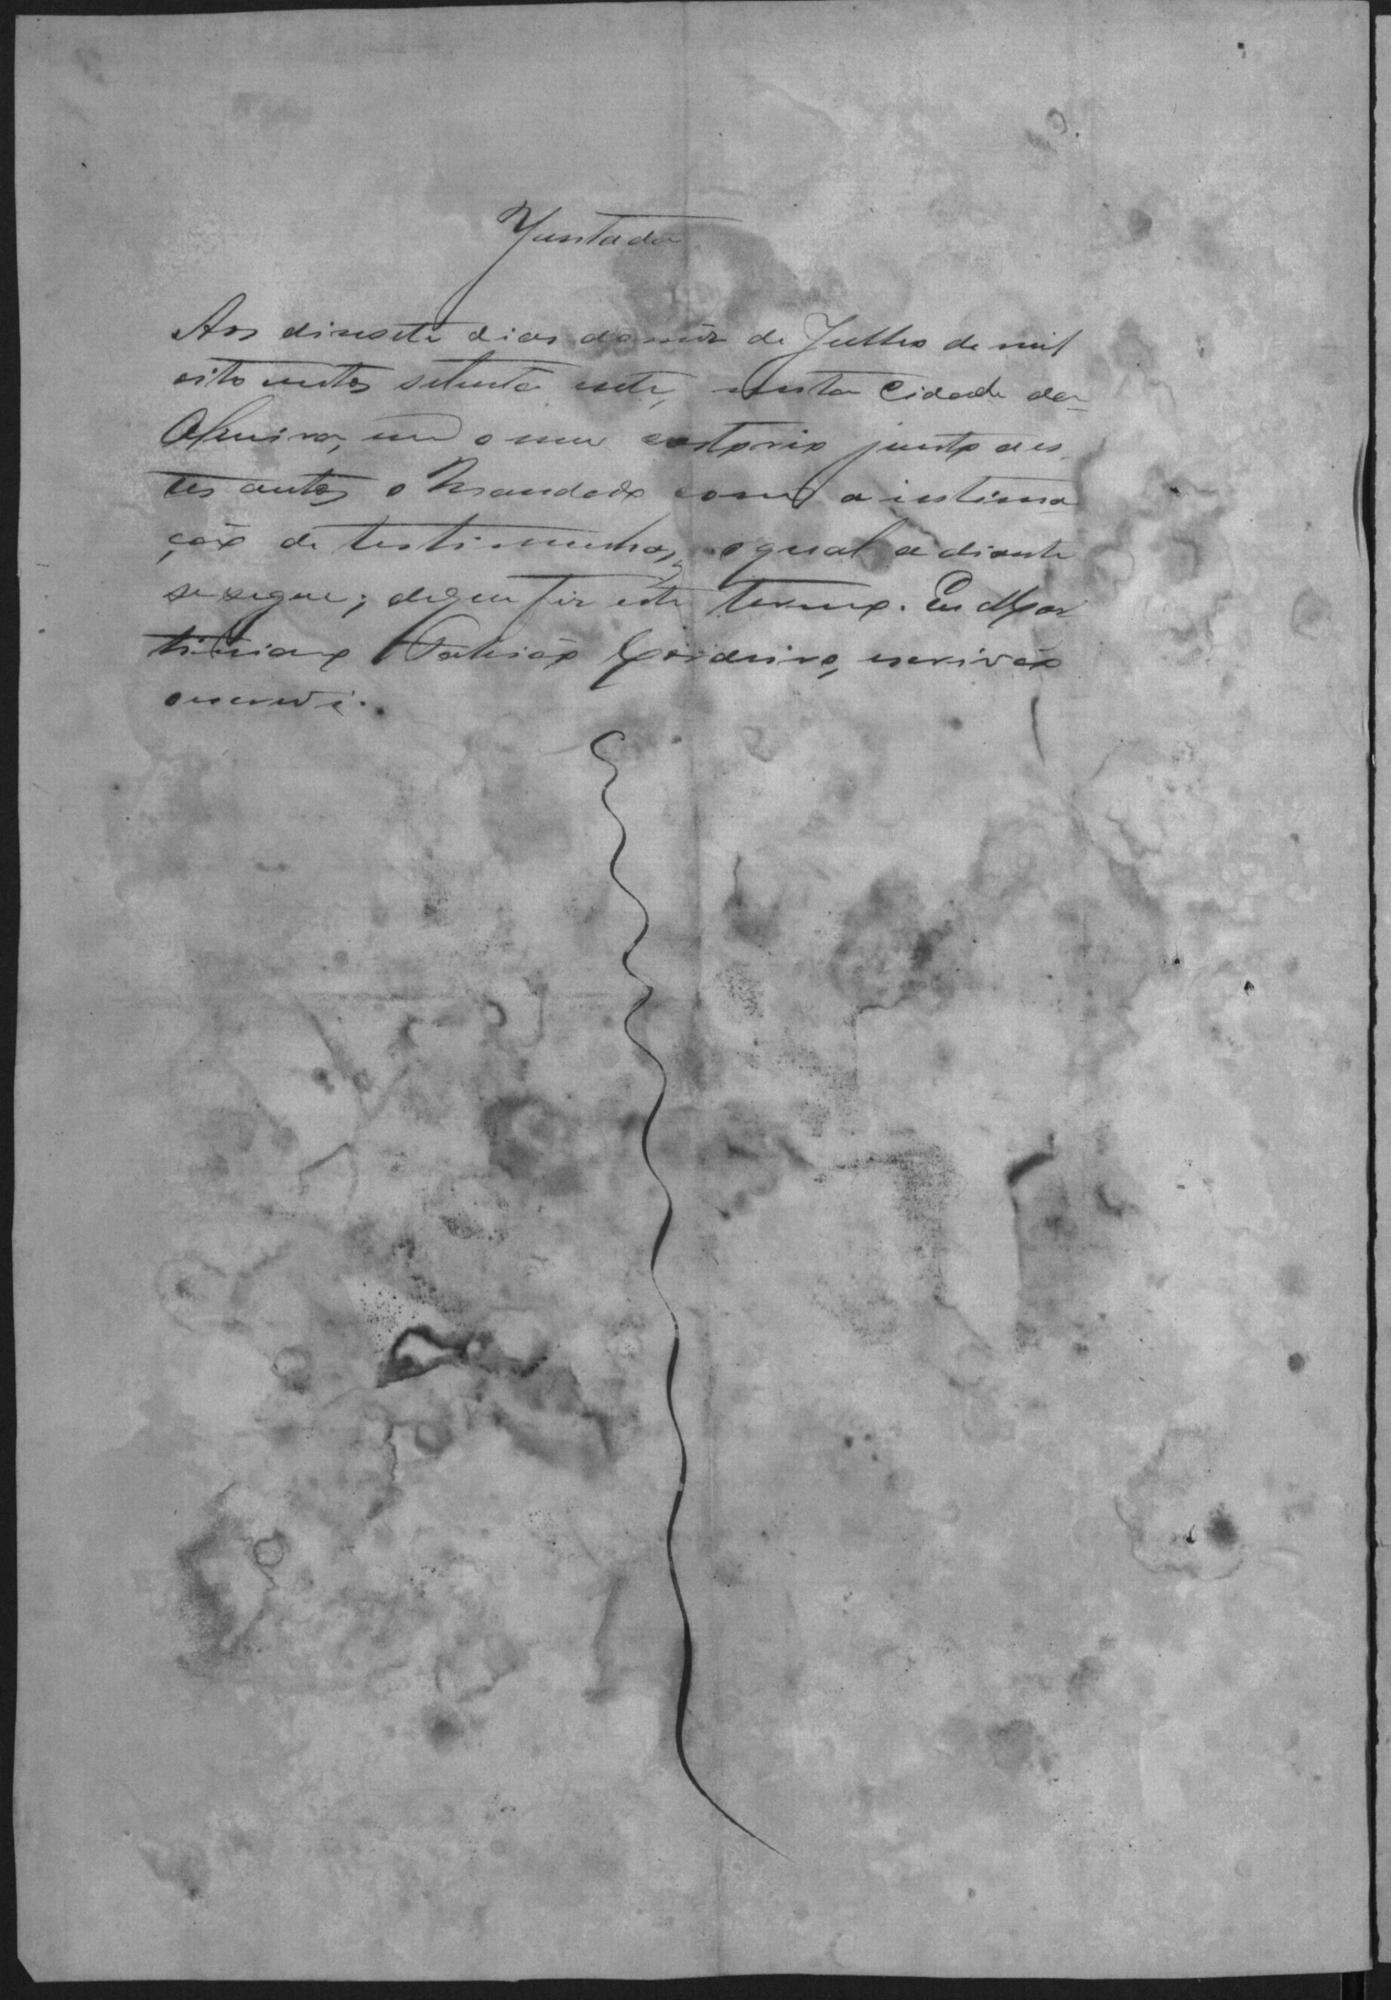 Juntada
Aos disesete dias do mez de Julho de mil
oito centos setenta e sete, nesta Cidade da
em o meu cartorio junto a es
tes autos o Mandado com a intima
ção de testimunhas, o qual a diante
se segue; do que fiz este termo. Eu Mar
tiniano Cordeiro, escrivão
o escrevi.